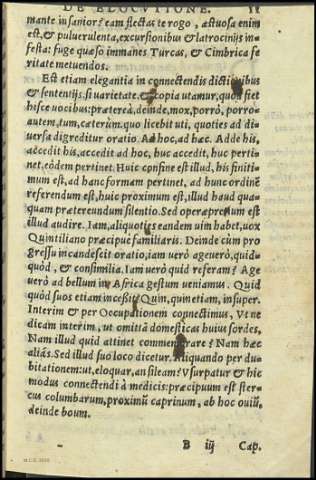 DE ELOCUTIONE. 11
mante in senior? eam flectas te rogo, actuosa enim
est, & puluerulenta, excursionibus & latrocinijs in-
festa: fuge quæso immanes Turcas, & Cimbrica fe
ritate metuendos.
Est etiam elegantia in connectendis dictionibus
& sententijs, si uarietate, & copia utamur, quod fiet
hisce uocibus: præterea, deinde, mox, porrò, porro-
autem, tum, cæterùm. quo licebit uti, quoties ad di
uersa digreditur oratio. Ad hoc, ad hæc. Adde his,
accedit his, accedit ad hoc, huc accedit, huc perti-
net, eòdem pertinet. Huic confine est illud, his finiti-
mum est, ad hanc formam pertinet, ad hunc ordinẽ
referendum est, huic proximum est, illud haud qua-
quam prætereundum silentio. Sed operæprecium est
illud audire. Iam, aliquoties eandem uim habet, uox
Quintiliano præcipuè familiaris. Deinde cùm pro
gressu incandescit oratio, iam uerò age uerò, quid
quòd, & consimilia. Iam uerò quid referam? Age
uerò ad bellum in Africa gestum ueniamus. Quid
quòd suos etiam incessit? Quin, quin etiam, insuper.
Interim & per Occupationem connectimus, Vt ne
dicam interim, ut omittã domesticas huius sordes,
Nam illud quid attinet commemorare? Nam hæc
aliâs. Sed illud suo loco dicetur. Aliquando per du-
bitationem: ut, eloquar, an sileam? Vsurpatur & hic
modus connectendi à medicis: præcipuum est ster-
cus columbarum, proximũ caprinum, ab hoc ouiũ,
deinde boum.
B iij Cap.